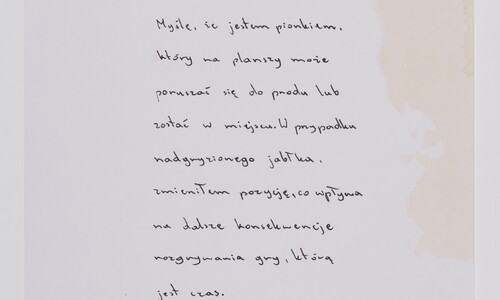 Myślę, że jestem pionkiem,
który na planszy może
poruszać się do przodu lub
zostać w miejscu. W przypadku
nadgryzionego jabłka.
zmieniłem pozycję, co wpływa
na dalsze konsekwencje
rozgrywania gry, którą
jest czas.